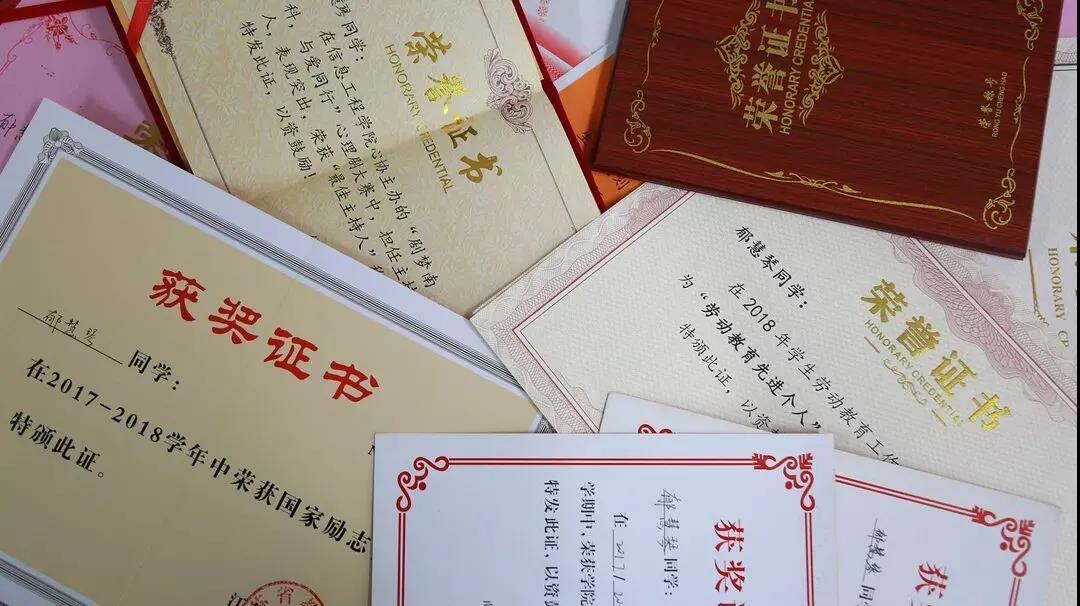 荣誉证书
HONORARY CREDENTIAL
同学:
在信息工程学院心协主办的“剧梦南
与爱同行”心理剧大赛中,担任主持
科,表现突出,荣获“最佳主持人”
特发此证,以资鼓励!
荣誉证书
HONORARY CREDENTIAL
荣誉称号
RONG YU CHENG HAO
获奖证书
郁慧琴同学:
在2017-2018学年中荣获国家励志
特颁此证。
荣誉证书
HONORARY CREDENTIAL
郁慧琴同学:
在2018年学生劳动教育工作
为“劳动教育先进个人”
特颁此证,以资
HONORARY
获奖
郁慧琴同学:
在2017/20
学期中,荣获学院
特发此证,以资
获
郁慧琴同学